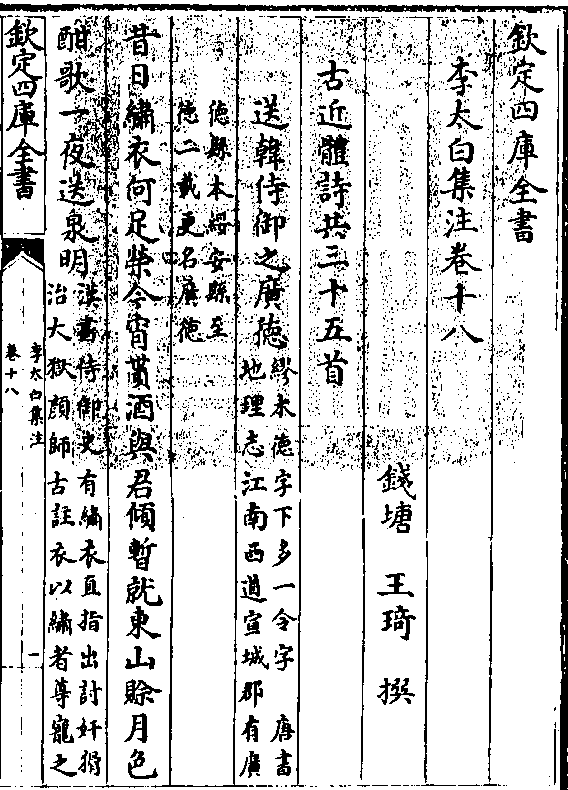 欽定四庫全書
李太白集注卷十八
錢塘 王琦 撰
古近體詩共三十五首
送韓侍御之廣德繆本德字下多一令字 唐書
地理志江南西道宣城郡有廣
德縣本綏安縣至
德二載更名廣德
昔日繡衣何足榮今宵貰酒與君傾暫就東山賒月色
酣歌一夜送泉明漢書侍御史有繡衣直指出討奸猾
治大獄顔師古註衣以繡者尊寵之
欽定四庫全書
李太白集注
卷十八
一